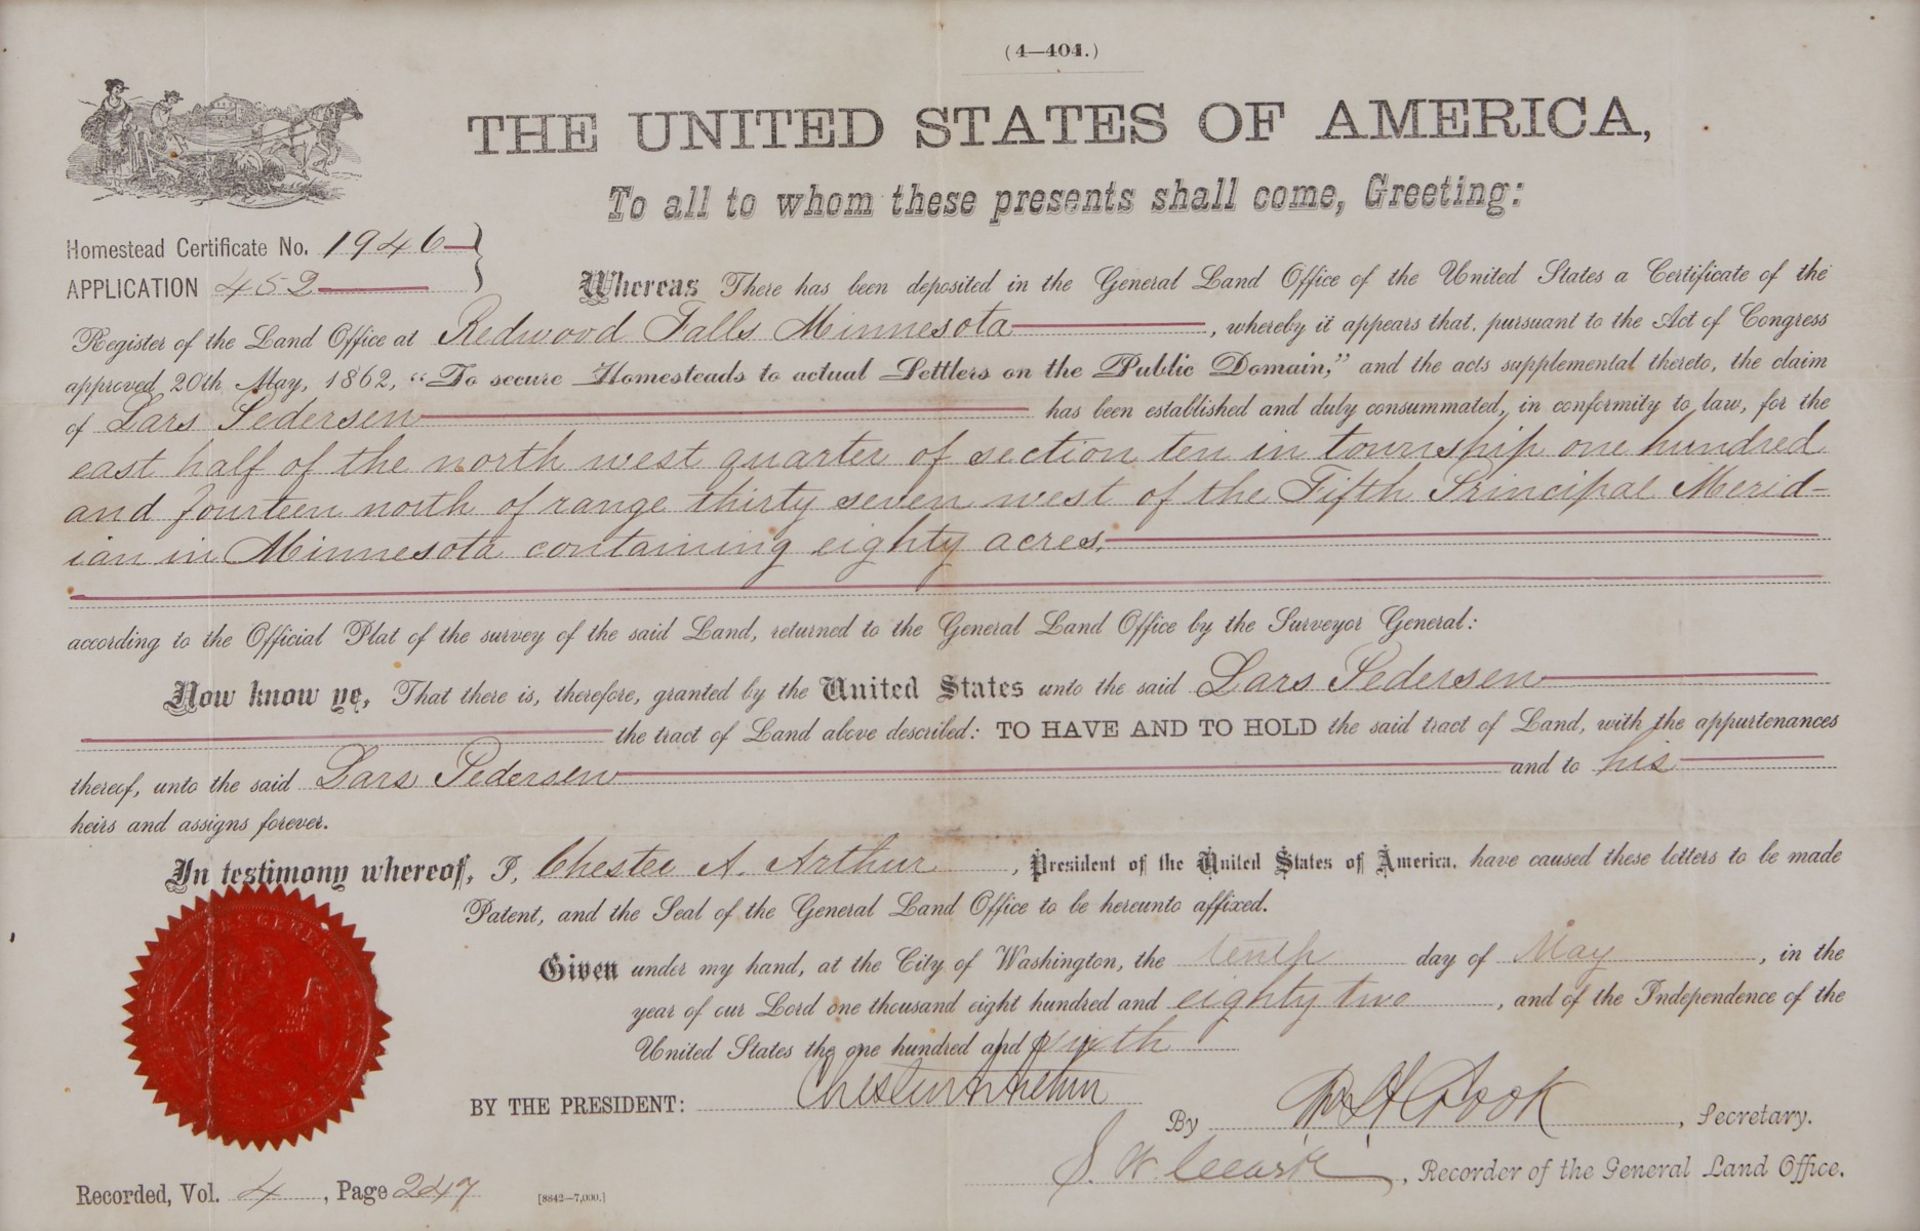 (4—404.)
THE UNITED STATES OF AMERICA,
To all to whom these presents shall come, Greeting:
Homestead Certificate No. 1946
APPLICATION 452
Whereas There has been deposited in the General Land Office of the United States a Certificate of the
Register of the Land Office at Redwood Falls Minnesota, whereby it appears that, pursuant to the Act of Congress
approved 20th May, 1862, “To secure Homesteads to actual Settlers on the Public Domain,” and the acts supplemental thereto, the claim
of Lars Pedersen has been established and duly consummated, in conformity to law, for the
east half of the north west quarter of section ten in township one hundred
and fourteen north of range thirty seven west of the Fifth Principal Merid-
ian in Minnesota containing eighty acres.
according to the Official Plat of the survey of the said Land, returned to the General Land Office by the Surveyor General:
Now know ye, That there is, therefore, granted by the United States unto the said Lars Pedersen
the tract of Land above described: TO HAVE AND TO HOLD the said tract of Land, with the appurtenances
thereof, unto the said Lars Pedersen and to his
heirs and assigns forever.
In testimony whereof, I, Chester A. Arthur, President of the United States of America, have caused these letters to be made
Patent, and the Seal of the General Land Office to be hereunto affixed.
Given under my hand, at the City of Washington, the tenth day of May, in the
year of our Lord one thousand eight hundred and eighty two, and of the Independence of the
United States the one hundred and sixth
BY THE PRESIDENT: Chester A Arthur
By Wm H Crook, Secretary.
S. W. Clark, Recorder of the General Land Office.
Recorded, Vol. 4, Page 247
[8842—7,000.]